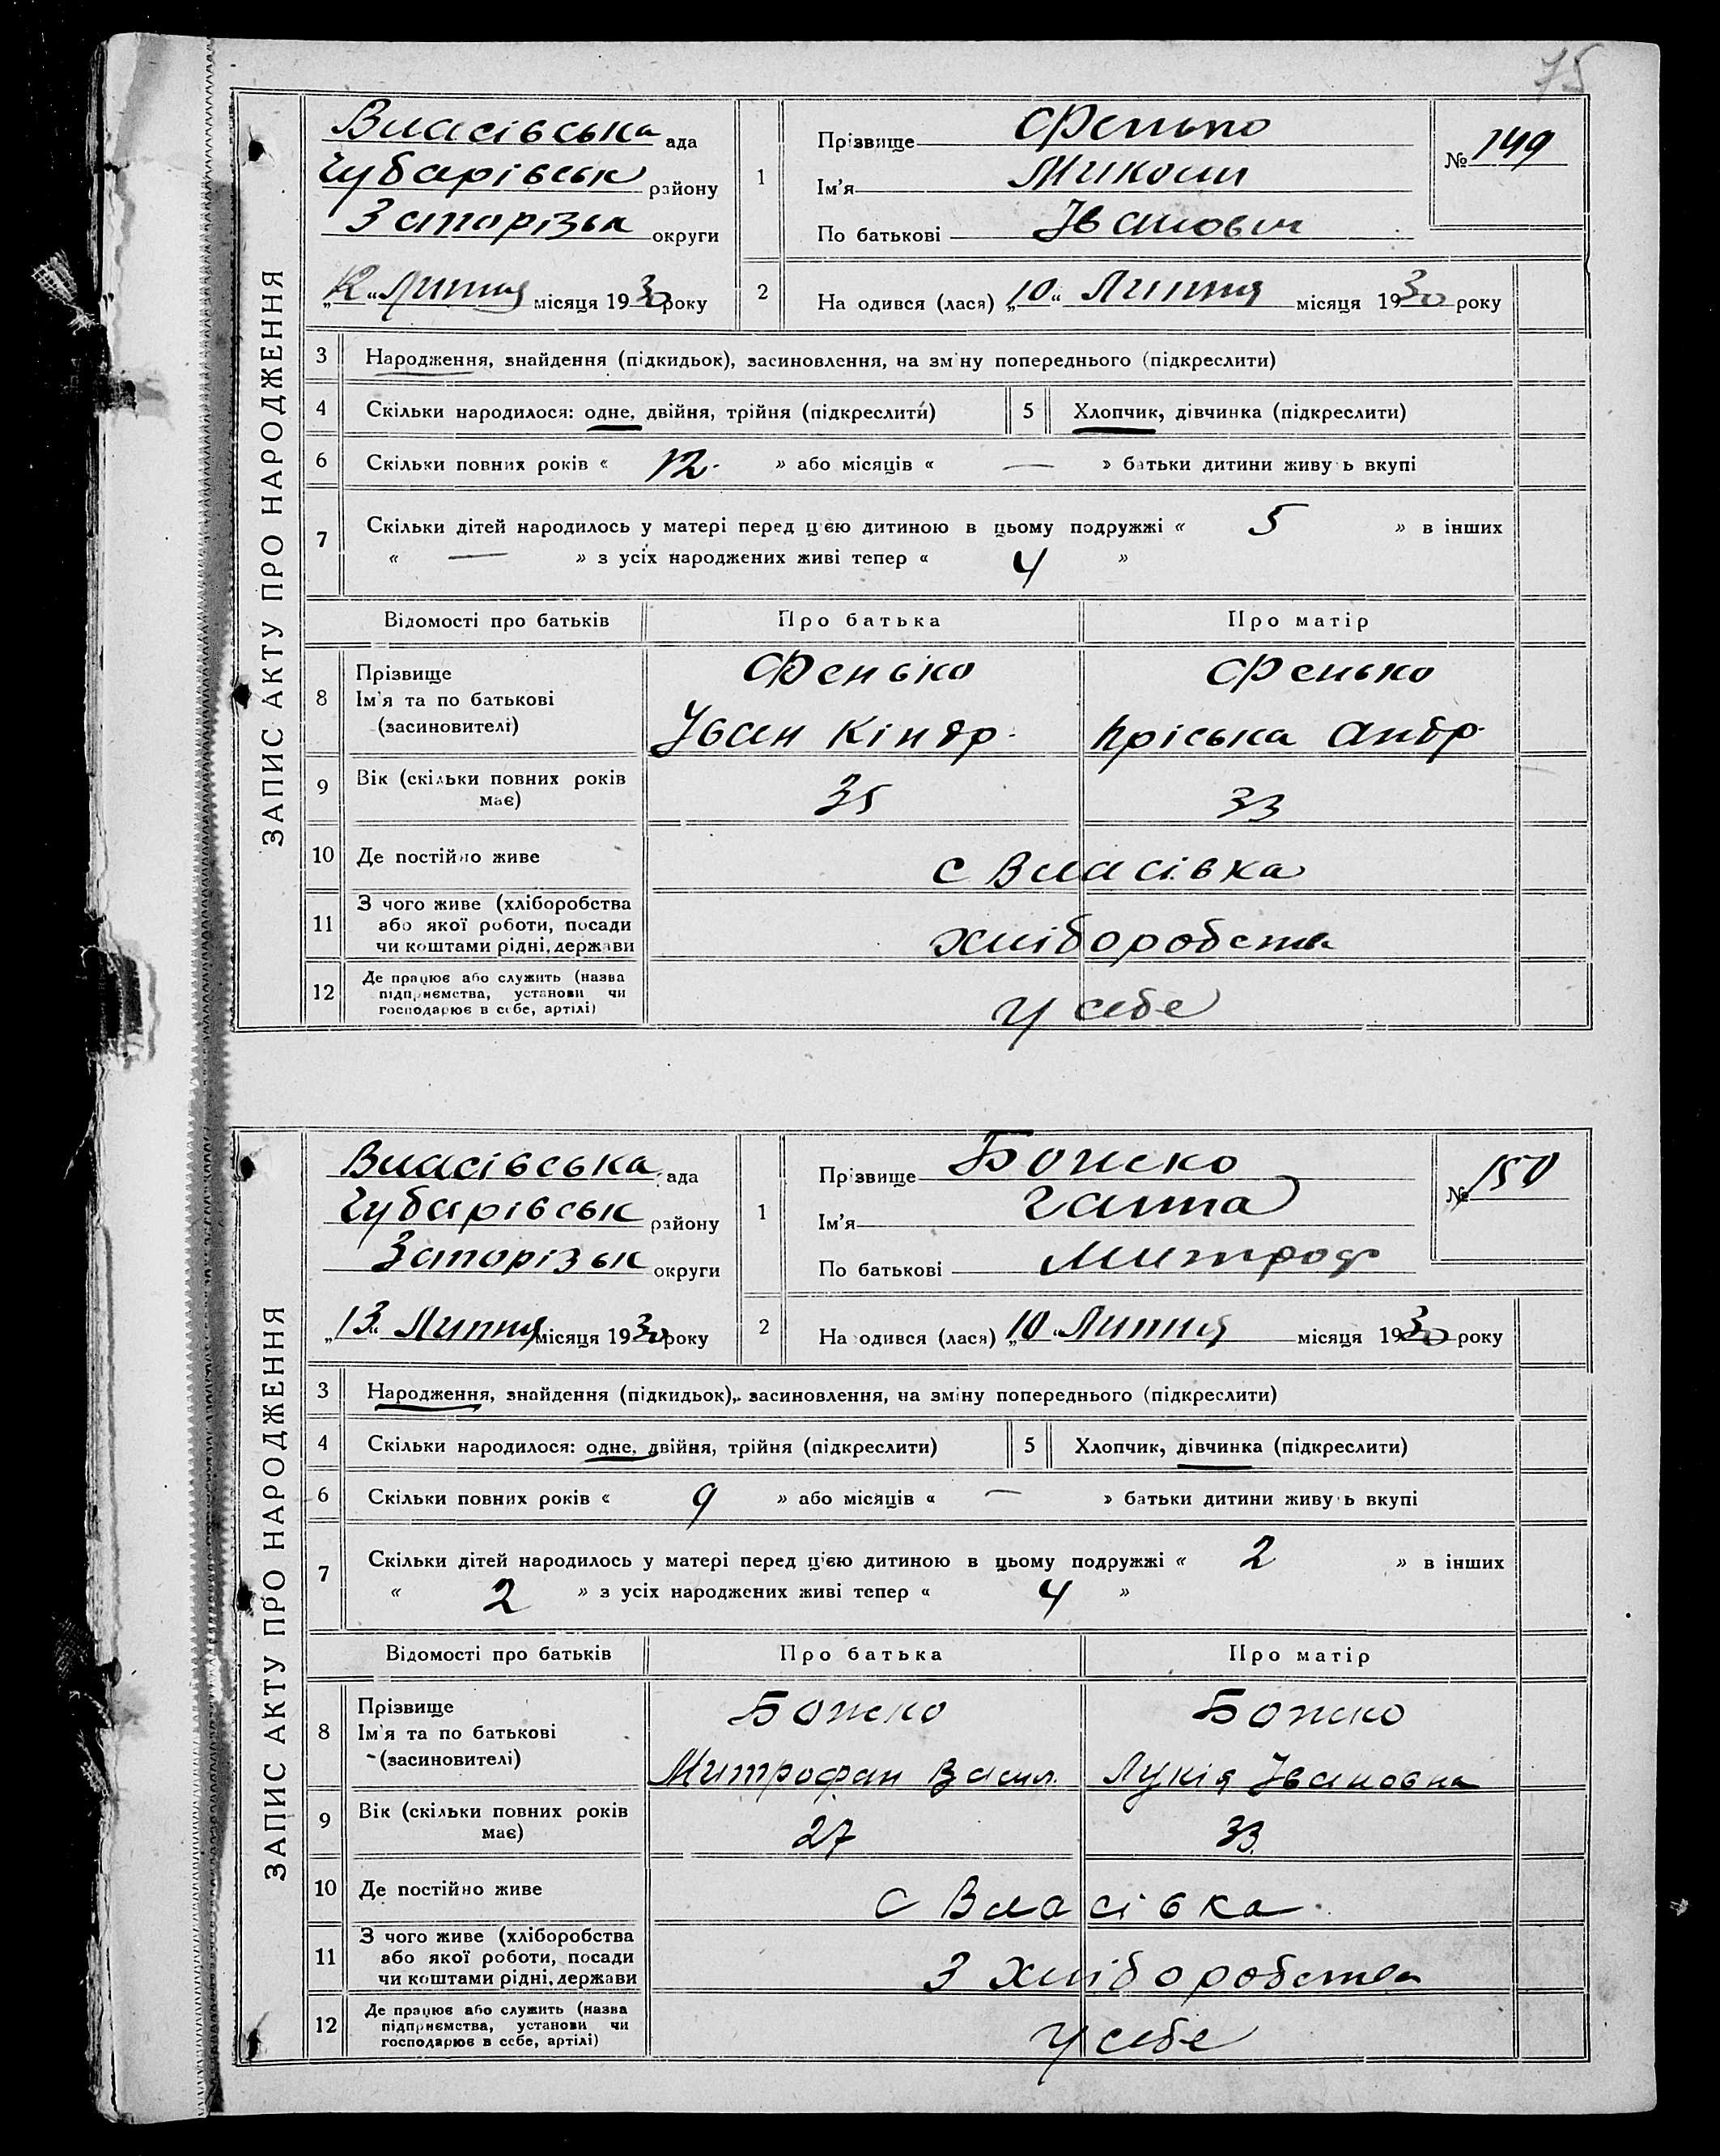 75
ЗАПИС АКТУ ПРО НАРОДЖЕННЯ
Власівська ада
Чубарівськ району
Запорізьк округи
„12“ Липня місяця 1930 року
1
Прізвище Фенько
Ім'я Микола
По батькові Іванович
№ 149
2
На одився (лася) „10“ Липня місяця 1930 року
3 Народження, знайдення (підкидьок), засиновлення, на зміну попереднього (підкреслити)
4 Скільки народилося: одне, двійня, трійня (підкреслити) 5 Хлопчик, дівчинка (підкреслити)
6 Скільки повних років « 12 » або місяців « — » батьки дитини живуть вкупі
7 Скільки дітей народилось у матері перед цією дитиною в цьому подружжі « 5 » в інших
« — » з усіх народжених живі тепер « 4 »
Відомості про батьків Про батька Про матір
8 Прізвище Фенько Фенько
Ім'я та по батькові
(засиновителі) Іван Кіндр. Пріська Андр.
9 Вік (скільки повних років
має) 35 33
10 Де постійно живе с Власівка
11 З чого живе (хліборобства
або якої роботи, посади
чи коштами рідні, держави хліборобства
12 Де працює або служить (назва
підприємства, установи чи
господарює в себе, артілі) у себе
ЗАПИС АКТУ ПРО НАРОДЖЕННЯ
Власівська ада
Чубарівськ району
Запорізьк округи
„13“ Липня місяця 1930 року
1
Прізвище Божко
Ім'я Ганна
По батькові Митроф
№ 150
2
На одився (лася) „10“ Липня місяця 1930 року
3 Народження, знайдення (підкидьок), засиновлення, на зміну попереднього (підкреслити)
4 Скільки народилося: одне, двійня, трійня (підкреслити) 5 Хлопчик, дівчинка (підкреслити)
6 Скільки повних років « 9 » або місяців « — » батьки дитини живуть вкупі
7 Скільки дітей народилось у матері перед цією дитиною в цьому подружжі « 2 » в інших
« 2 » з усіх народжених живі тепер « 4 »
Відомості про батьків Про батька Про матір
8 Прізвище Божко Божко
Ім'я та по батькові
(засиновителі) Митрофан Васил. Лукія Івановна
9 Вік (скільки повних років
має) 27 33
10 Де постійно живе с Власівка
11 З чого живе (хліборобства
або якої роботи, посади
чи коштами рідні, держави З хліборобства
12 Де працює або служить (назва
підприємства, установи чи
господарює в себе, артілі) у себе